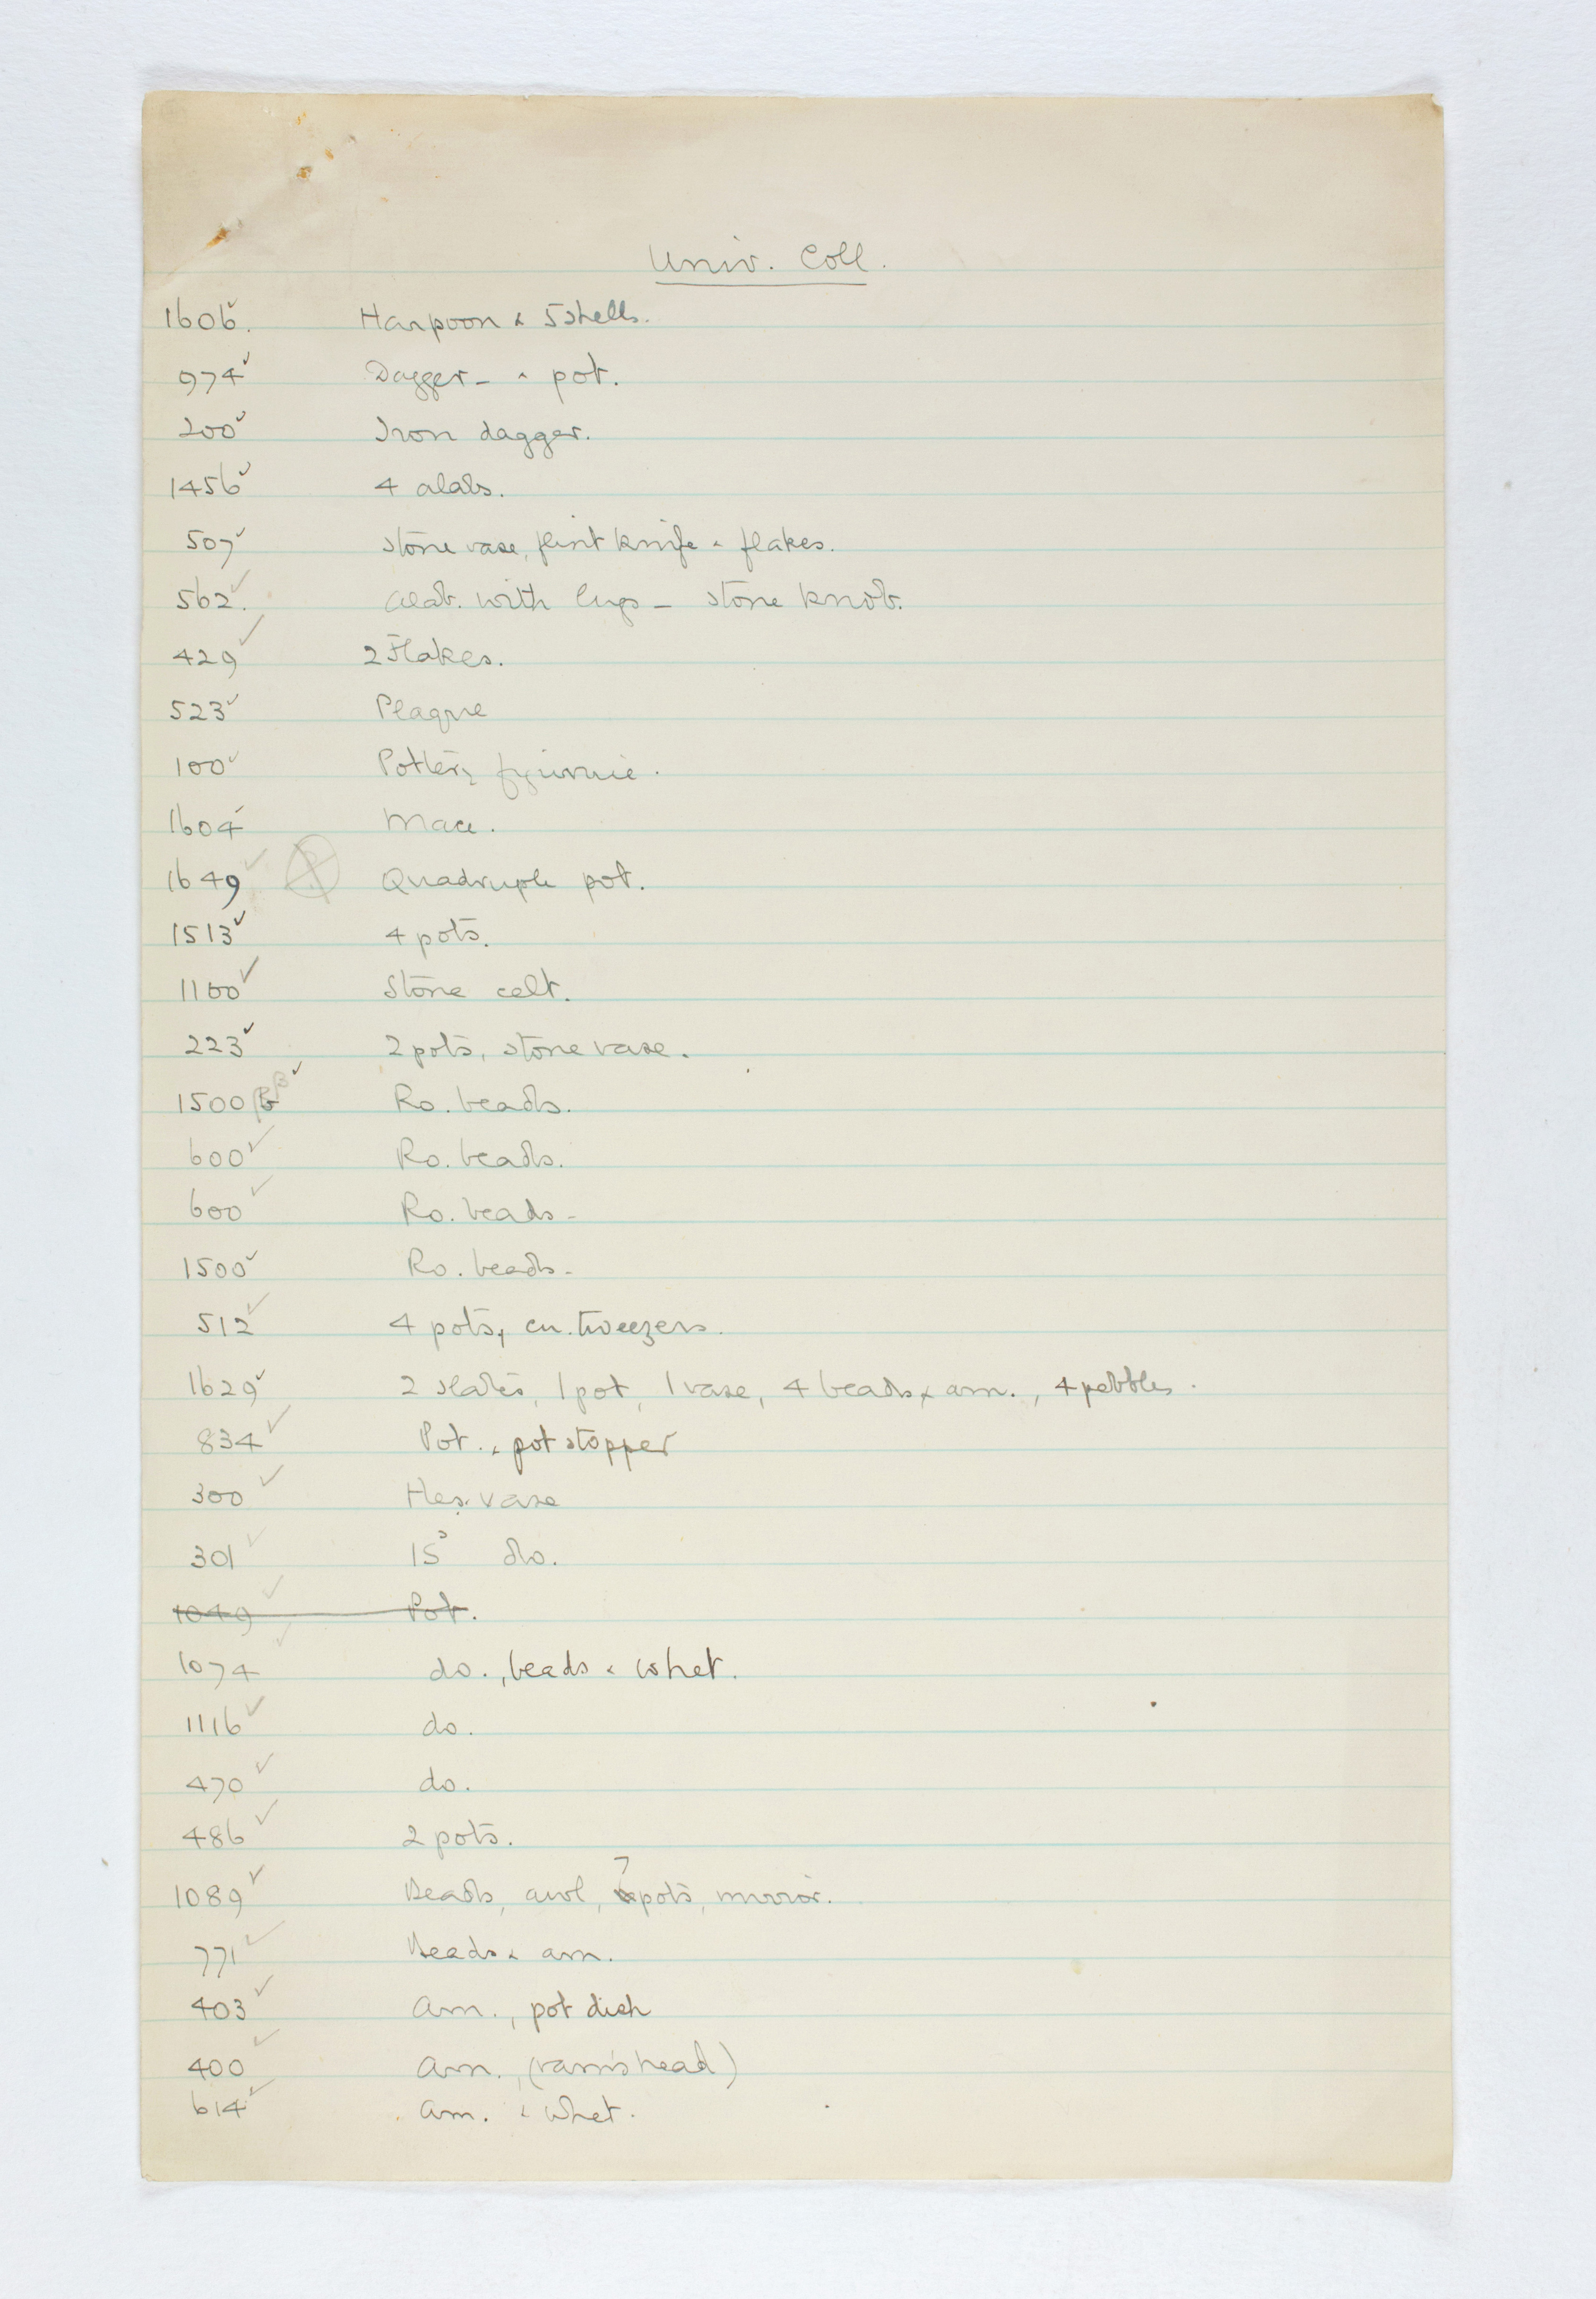 Univ. Coll.
1606. ✓ Harpoon & 5 shells.
974 ✓ Dagger - & pot.
200 ✓ Iron dagger.
1456 ✓ 4 alabs.
507 ✓ Stone vase, flint knife & flakes.
562. ✓ Alab. with lugs - stone knob.
429 ✓ 2 Flakes.
523 ✓ Plaque
100 ✓ Pottery figurine.
1604 ✓ Mace.
1649 ✓ Quadruple pot.
1513 ✓ 4 pots.
1100 ✓ Stone celt.
223 ✓ 2 pots, stone vase.
1500 B ✓ Ro. beads.
600 ✓ Ro. beads.
600 ✓ Ro. beads -
1500 ✓ Ro. beads -
512 ✓ 4 pots, cu. tweezers.
1629 ✓ 2 slates, 1 pot, 1 vase, 4 beads & am., 4 pebbles.
834 ✓ Pot. & pot stopper
300 ✓ Hes. vase
301 ✓ do.
1049 ✓ Pot.
1074 ✓ do., beads & whet.
1116 ✓ do.
470 ✓ do.
486 ✓ 2 pots.
1089 ✓ Beads, awl, 7 pots, mirror.
771 ✓ Beads & am.
403 ✓ Am., pot dish
400 ✓ Am., (ram's head)
614 ✓ Am. & whet.